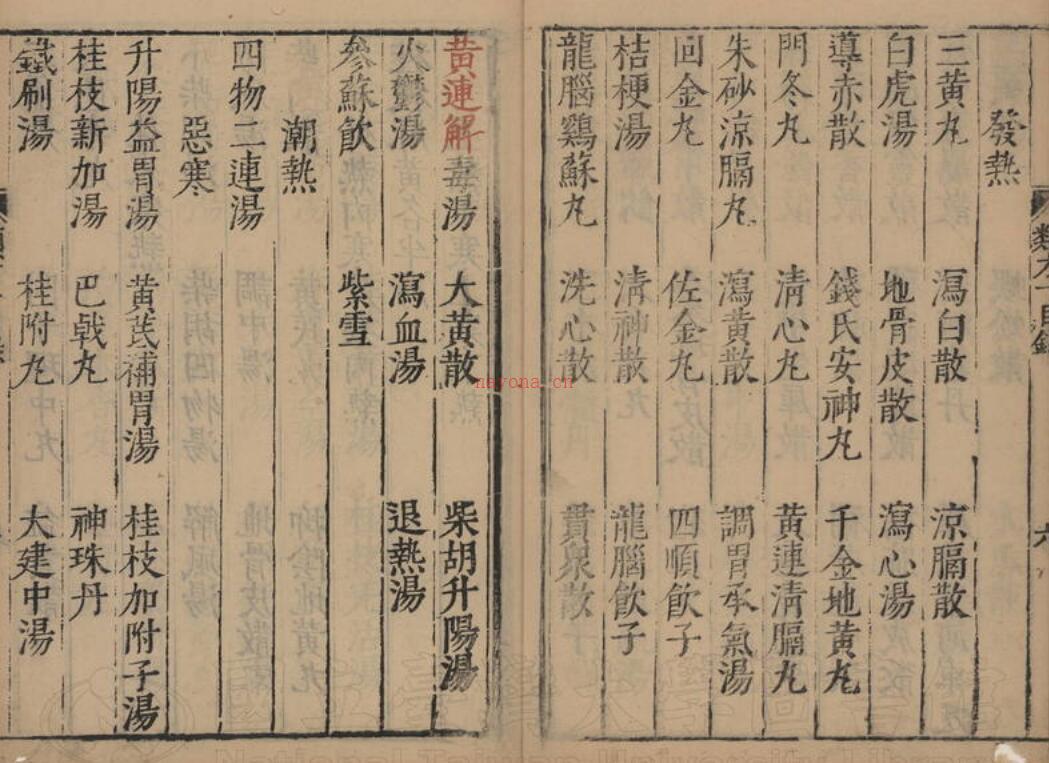 發熱
三黃丸 瀉白散 涼膈散
白虎湯 地骨皮散 瀉心湯
導赤散 錢氏安神丸 千金地黃丸
門冬丸 清心丸 黃連清膈丸
朱砂涼膈丸 瀉黃散 調胃承氣湯
回金丸 佐金丸 四順飲子
桔梗湯 清神散 龍腦飲子
龍腦鷄蘇丸 洗心散 貫衆散
黃連解毒湯 大黃散 柴胡升陽湯
火鬱湯 瀉血湯 退熱湯
參蘇飲 紫雪
潮熱
四物二連湯
惡寒
升陽益胃湯 黃芪補胃湯 桂枝加附子湯
桂枝新加湯 巴戟丸 神珠丹
鐵刷湯 桂附丸 大建中湯
nayona.cn